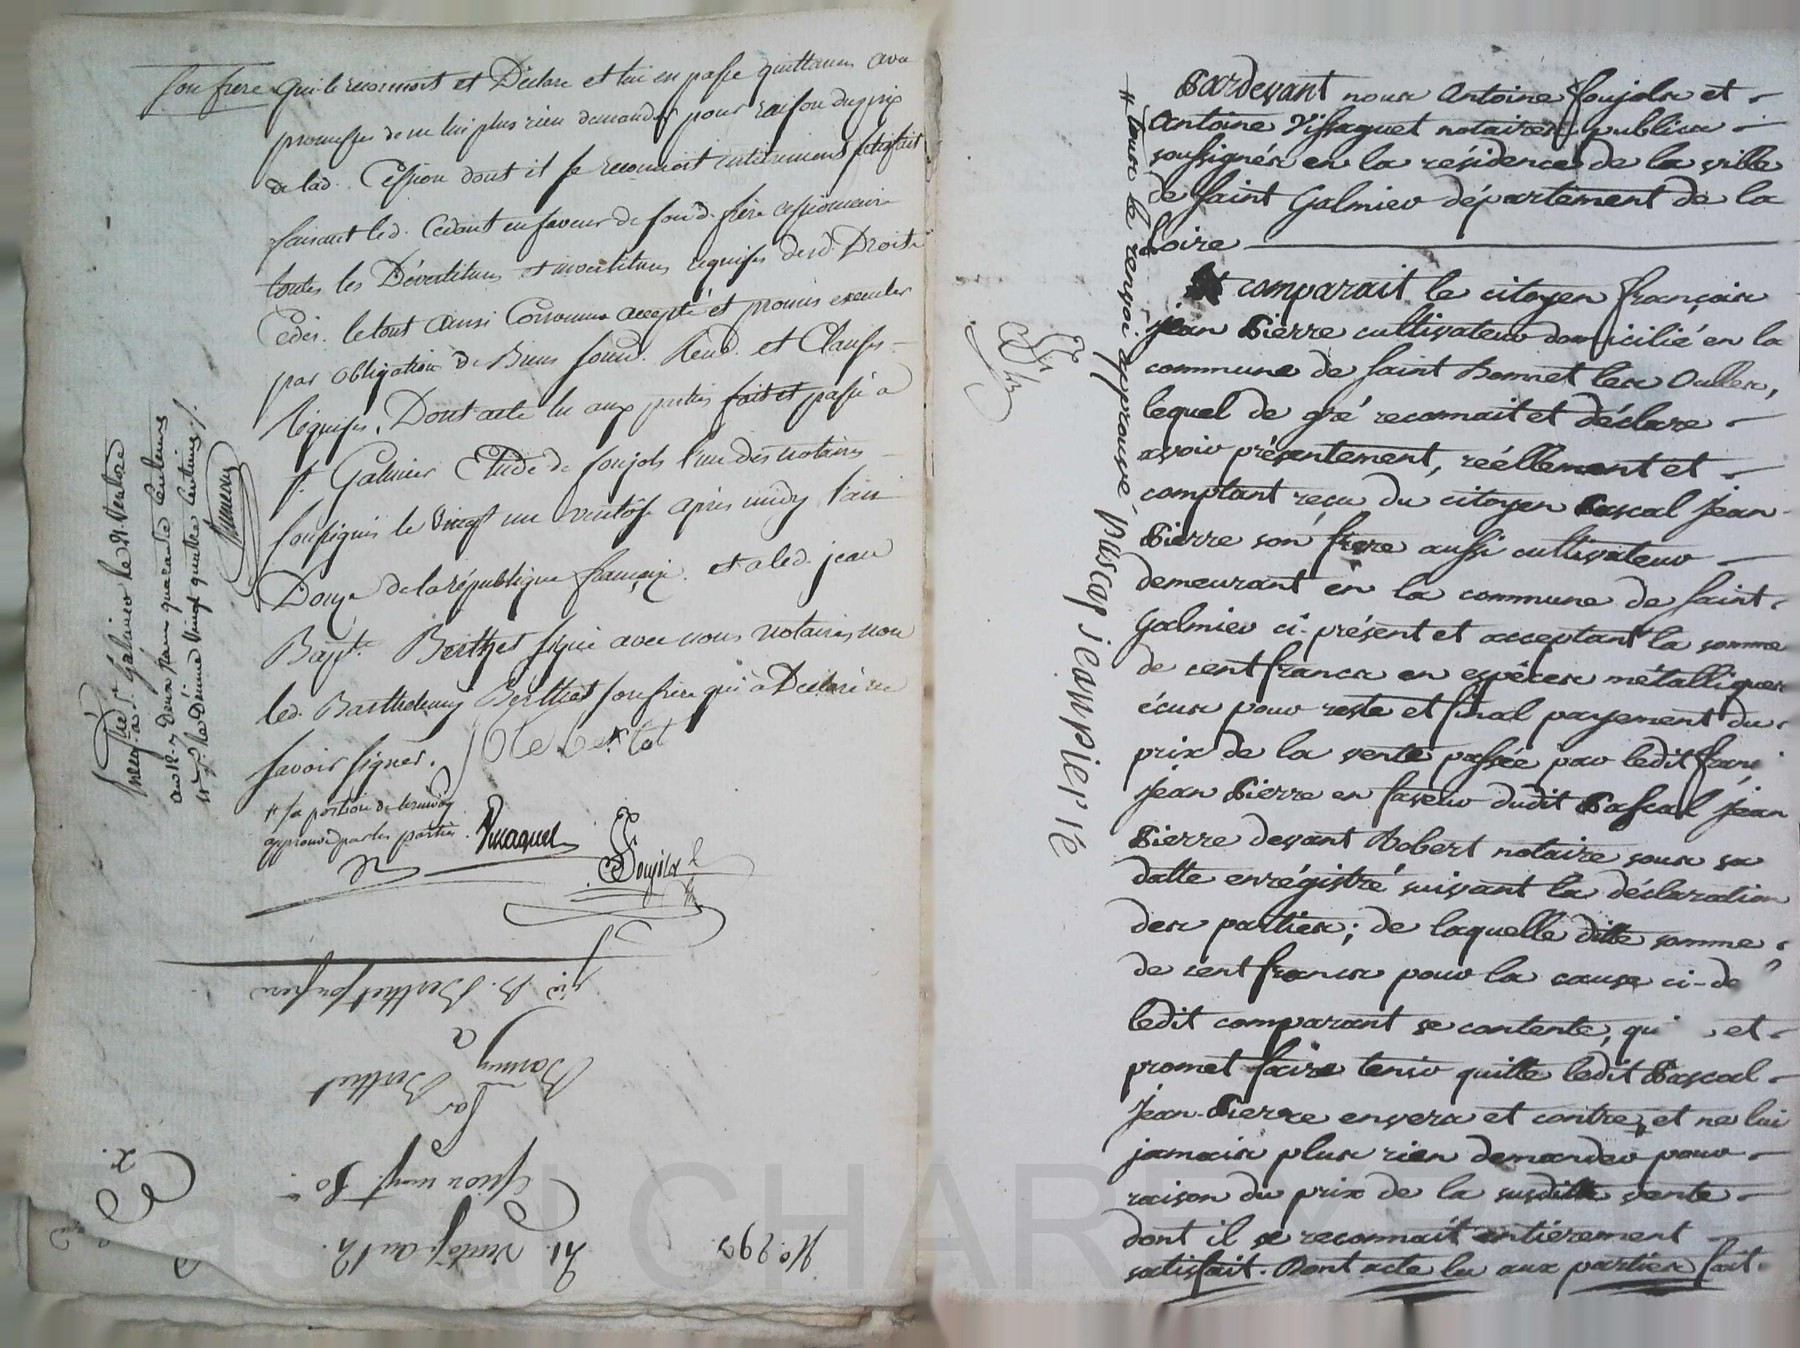 son frère qui le reconnoit et Déclare et lui en passe quittance avec
promesse de ne lui plus rien demander pour raison du prix
de lad. Cession dont il se reconnoit entièrement satisfait
faisant led. Cedant en faveur de son d. frère cessionnaire
toutes les Dévestitures et investitures requises desd. Droits
Cédés. le tout ainsi Convenu accepté et promis executer
par obligation de Biens soum. Rend. et Clauses
Requises. Dont acte lu aux parties fait et passé à
st. Galmier Etude de foujols l'un des notaires
soussignés le vingt un ventôse après midy l'an
Douze de la république française. et a led. jean
Bapte. Berthet signé avec nous notaires non
led. Barthelemy Berthet son frère qui a Déclaré ne
savoir signer.
# sa portion de
approuvé par les parties.
Vissaguet
Foujols
Enregistré à St. Galmier le 21 Ventose
an 12. deux francs quarante centimes
le Dixme vingt quatre Centimes
B. Berthet son frère
a
Barmy
Par Berthet
Cession 80
21. ventose an 12.
No. 293
Pardevant nous Antoine foujols et
Antoine Vissaguet notaires publics
soussignés en la résidence de la ville
de Saint Galmier département de la
Loire
comparait le citoyen françois
jean Pierre cultivateur domicilié en la
commune de Saint Bonnet les Oulles,
lequel de gré reconnait et déclare
avoir présentement, réellement et
comptant reçu du citoyen Pascal Jean
Pierre son frere aussi cultivateur
demeurant en la commune de Saint
Galmier ci-présent et acceptant la somme
de cent francs en espéces métalliques
écus pour reste et final payement du
prix de la vente passée par ledit
Jean Pierre en faveur dudit Pascal Jean
Pierre devant Robert notaire sous sa
datte enrégistré suivant la déclaration
des parties; de laquelle ditte somme
de cent francs pour la cause ci-de
ledit comparant se contente, qui et
promet faire tenir quitte ledit Pascal
Jean-Pierre envers et contre, et ne lui
jamais plus rien demander pour
raison du prix de la susditte vente
dont il se reconnait entièrement
satisfait. Dont acte lu aux parties fait
# tous le renvoi approuvé, pascal jean pierre
Pascal CHAR